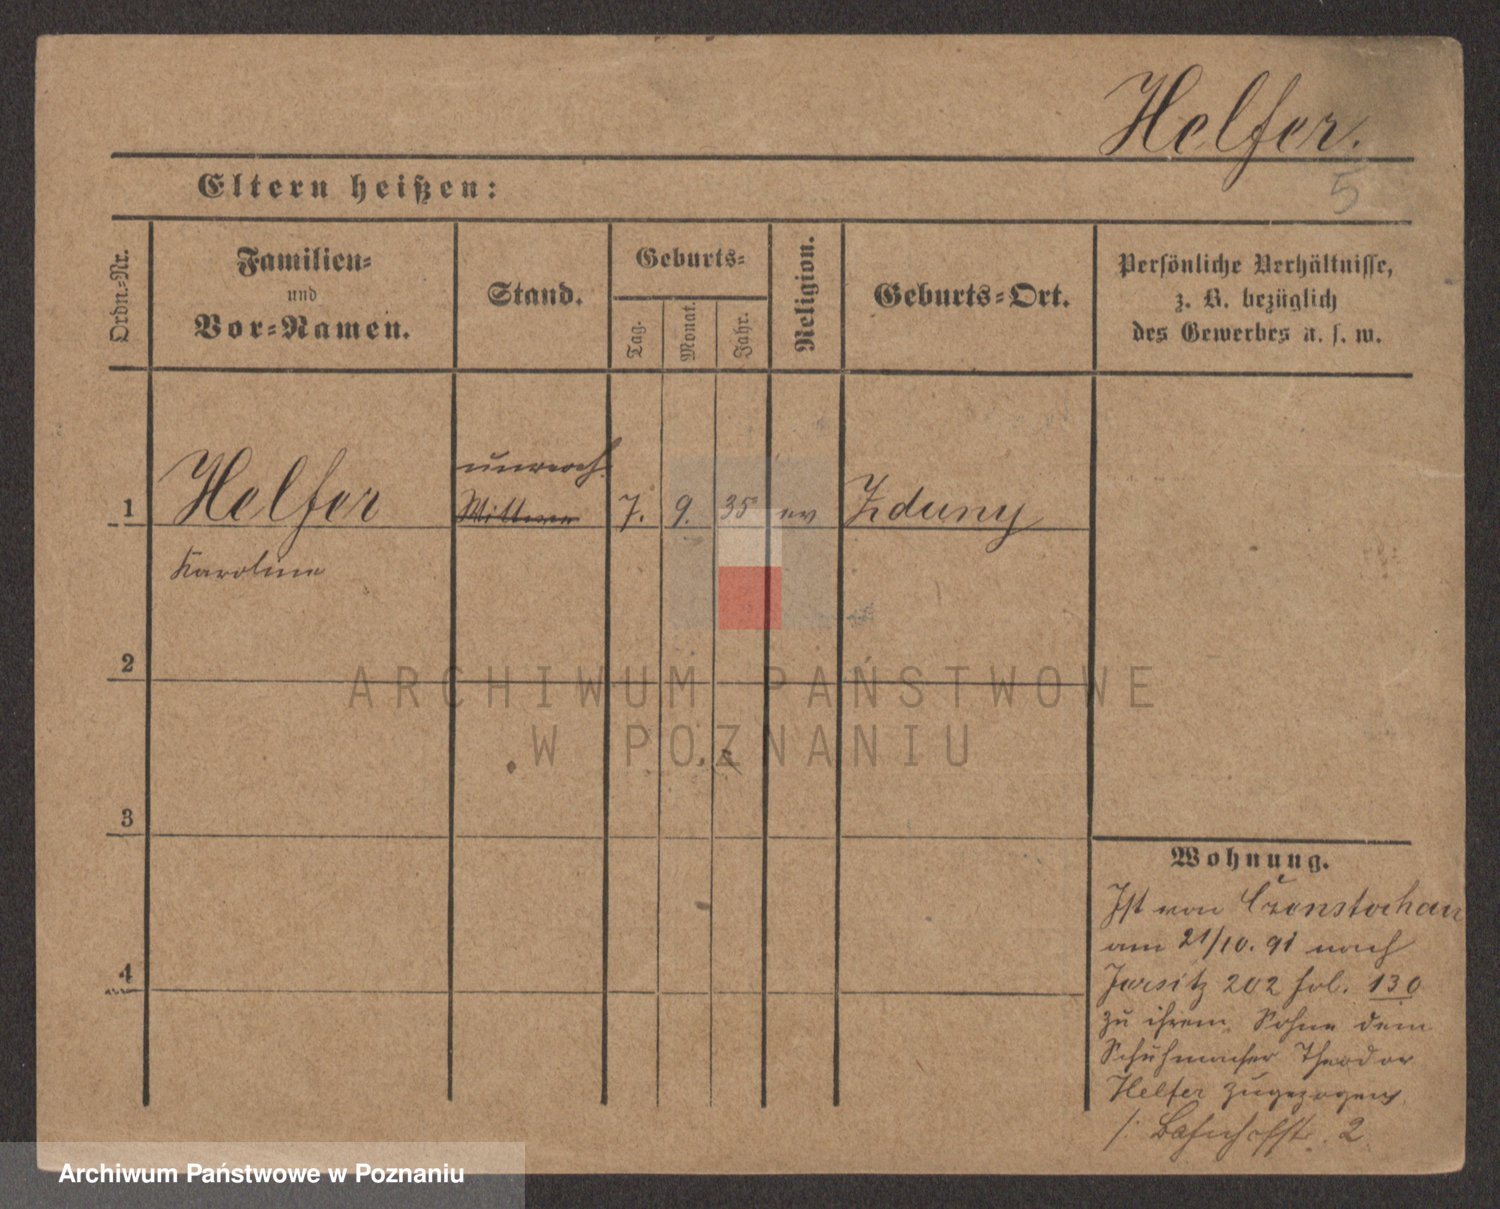 Helfer.
5
Eltern heißen:
Ordn.-Nr.
Familien-
und
Vor-Namen.
Stand.
Geburts-
Tag.
Monat.
Jahr.
Religion.
Geburts-Ort.
Persönliche Verhältnisse,
z. B. bezüglich
des Gewerbes u. s. w.
unvereh.
1 Helfer Wittwe 7. 9. 35 ev Zduny
Karoline
2
ARCHIWUM PAŃSTWOWE
W POZNANIU
3
Wohnung.
Ist von Czenstochau
am 21/10. 91 nach
Jersitz 202 fol. 130
zu ihrem Sohne dem
Schuhmacher Theodor
Helfer zugezogen
4
/: Bahnhofstr. 2
Archiwum Państwowe w Poznaniu